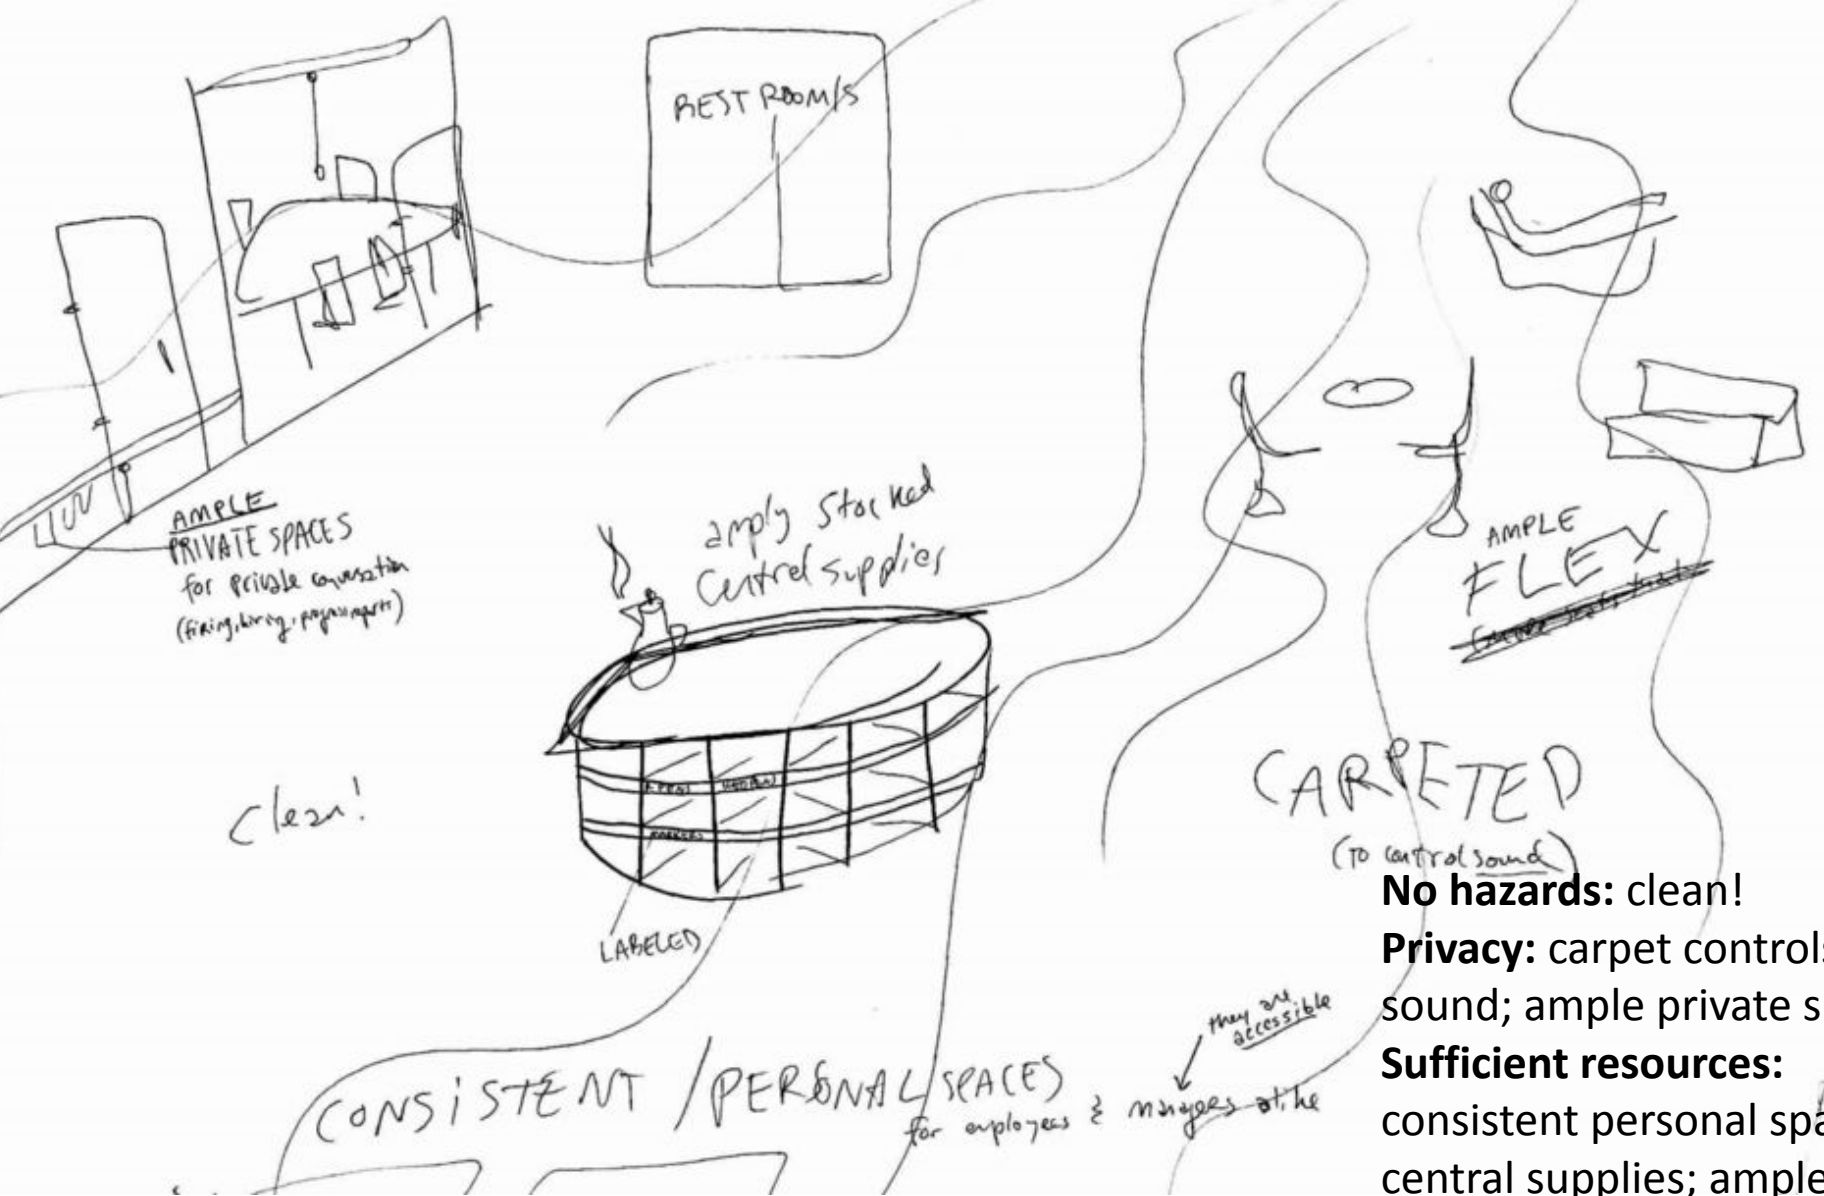 REST ROOM/S
AMPLE
PRIVATE SPACES
for private conversation
(firing, hiring, progress reports)
amply stocked
Central supplies
AMPLE
FLEX
Clean!
MARKERS
CARPETED
(TO control sound)
LABELED
they are
accessible
CONSISTENT / PERSONAL SPACES
for employees & managers alike
No hazards: clean!
Privacy: carpet controls
sound; ample private s
Sufficient resources:
consistent personal spa
central supplies; ample